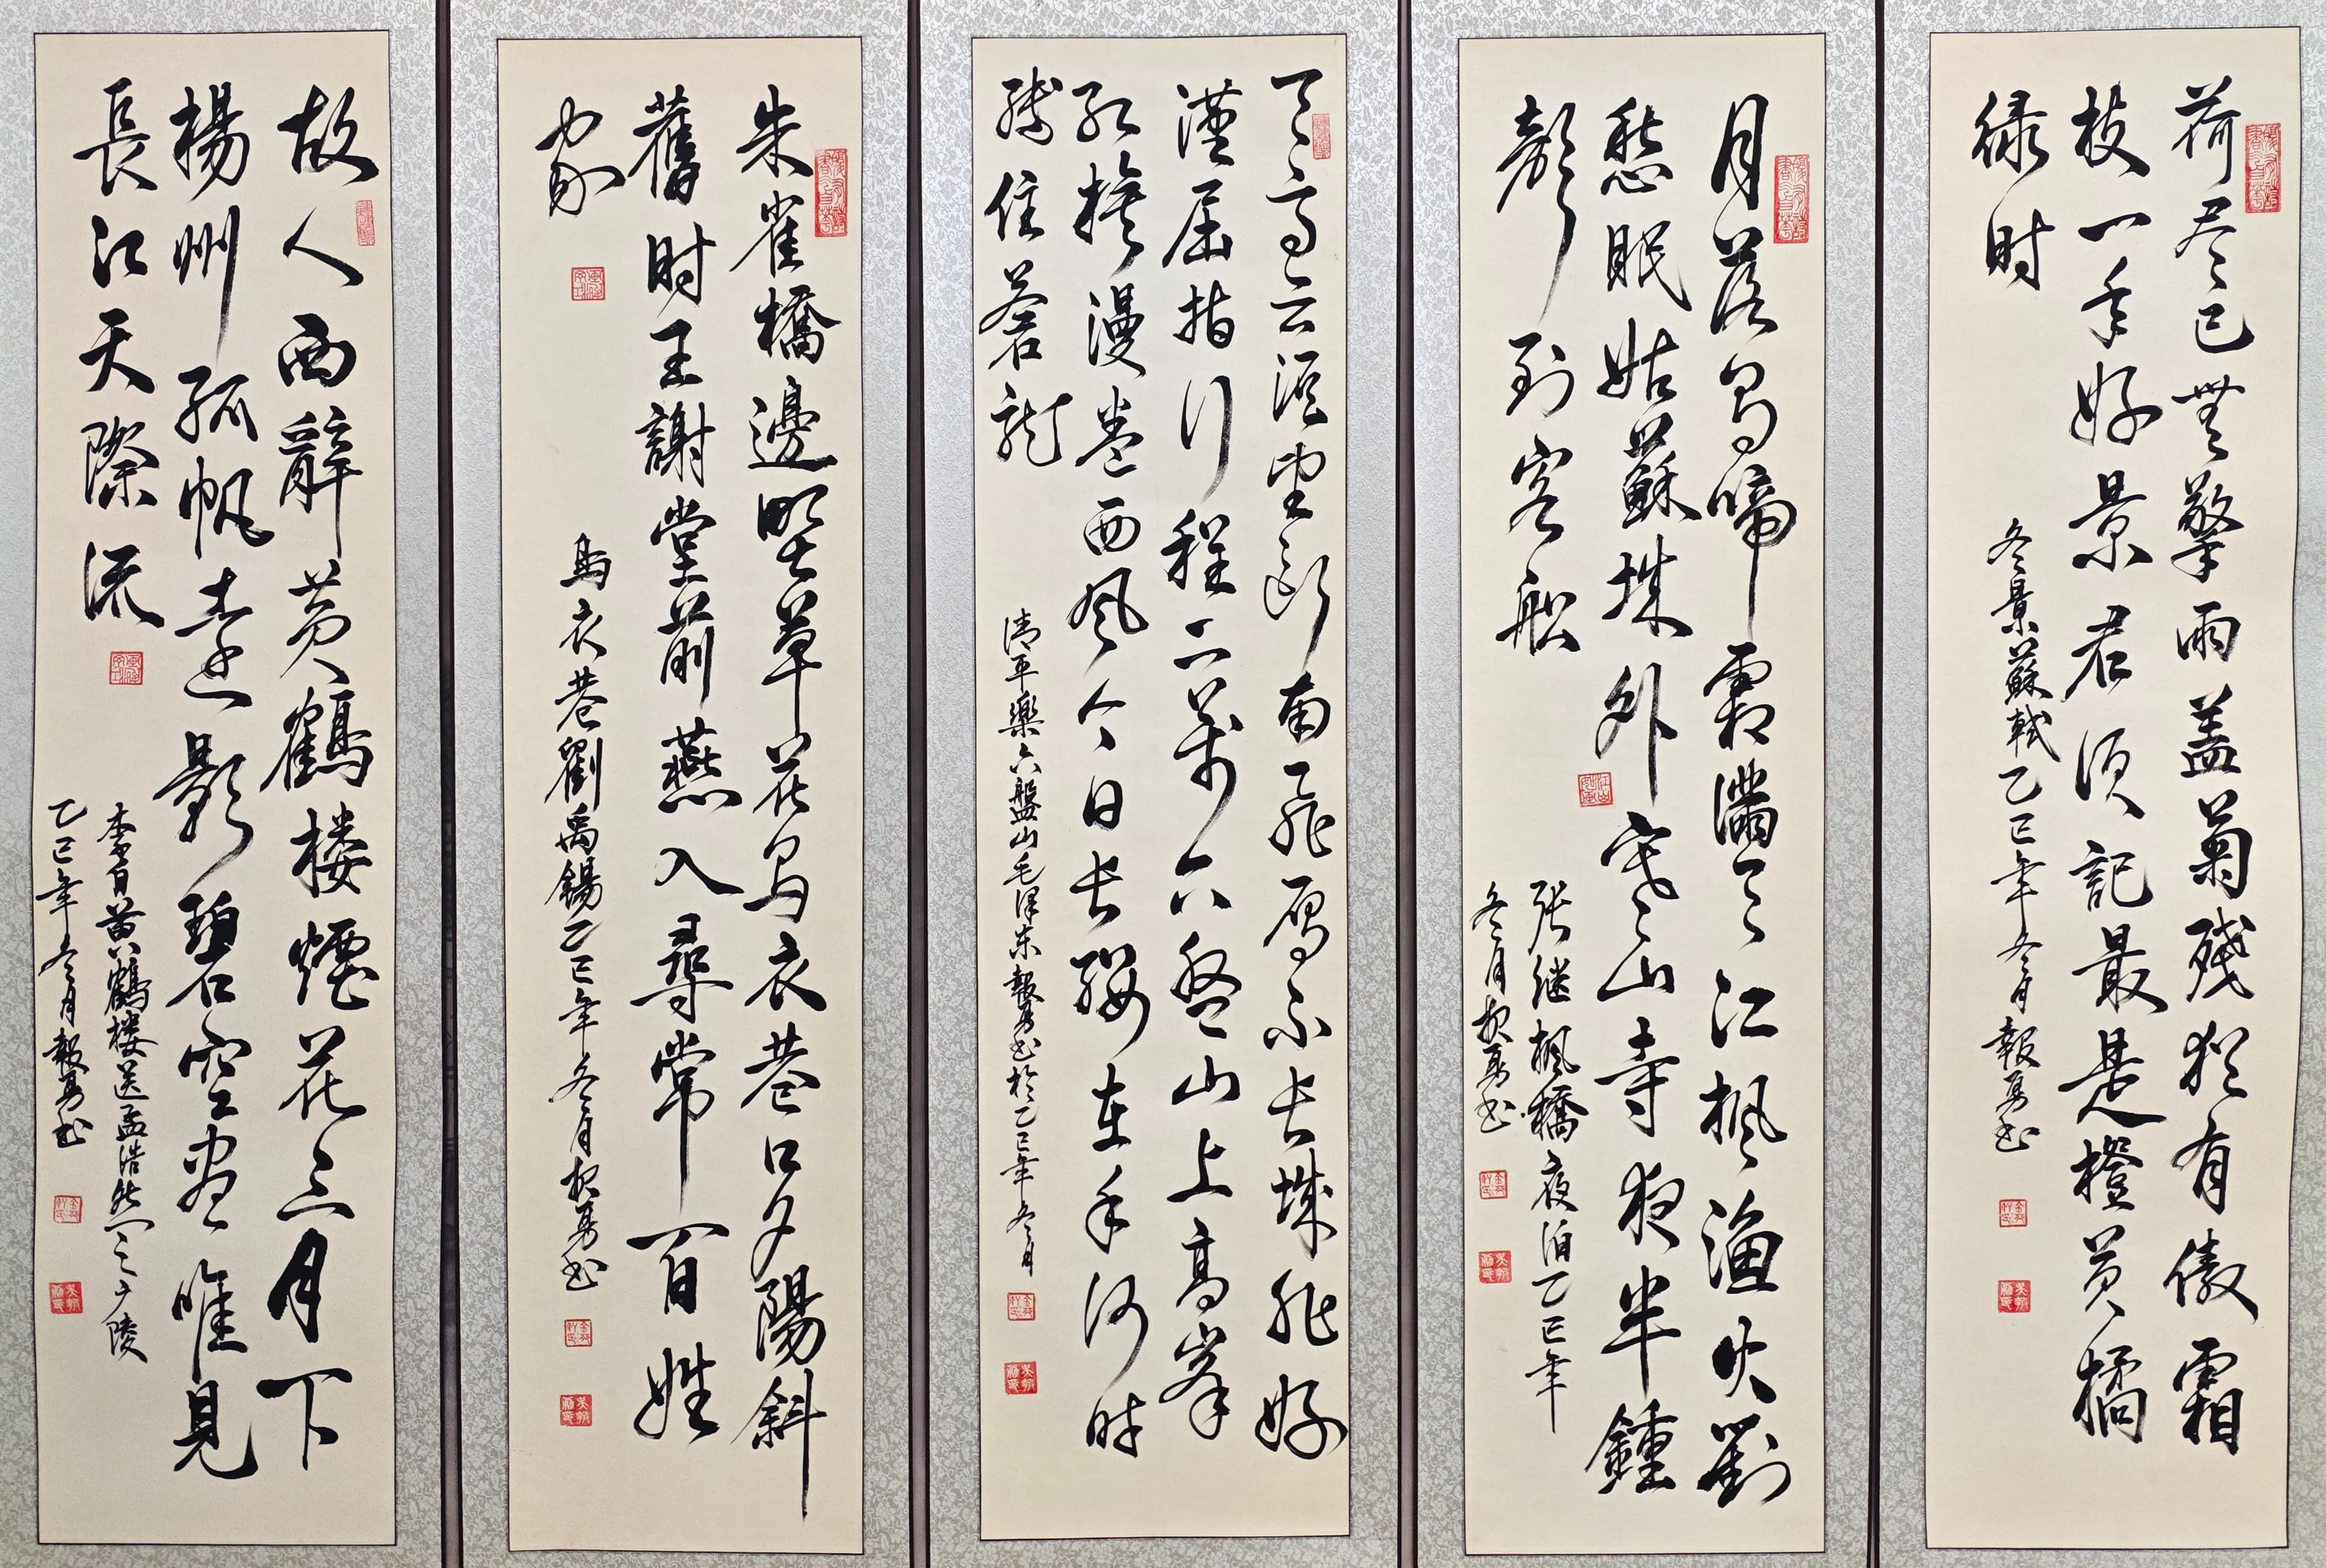 荷尽已無擎雨盖菊殘犹有傲霜
枝一年好景君须記最是橙黄橘
绿时
冬景蘇軾乙巳年冬月報勇书
月落烏啼霜滿天江枫渔火對
愁眠姑蘇城外寒山寺夜半鍾
聲到客船
张继枫橋夜泊乙巳年
冬月报勇书
天高云淡望断南飛雁不长城非好
漢屈指行程二万六盤山上高峯
红旗漫卷西风今日长缨在手何时
缚住蒼龍
清平樂六盤山毛泽东報勇书於乙巳年冬月
朱雀橋邊野草花烏衣巷口夕陽斜
舊時王謝堂前燕入尋常百姓
家
烏衣巷劉禹錫乙巳年冬月报勇书
故人西辭黄鶴楼煙花三月下
楊州孤帆遠影碧空尽唯見
長江天際流
李白黄鶴楼送孟浩然之广陵
乙巳年冬月報勇书